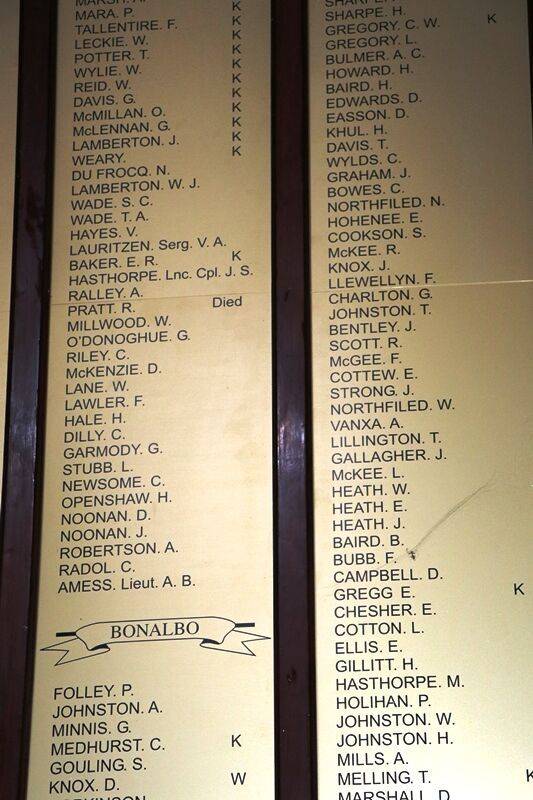 MARSH. A.
MARA. P. K
TALLENTIRE. F. K
LECKIE. W. K
POTTER. T. K
WYLIE. W. K
REID. W. K
DAVIS. G. K
McMILLAN. O. K
McLENNAN. G. K
LAMBERTON. J. K
WEARY. K
DU FROCQ. N.
LAMBERTON. W. J.
WADE. S. C.
WADE. T. A.
HAYES. V.
LAURITZEN. Serg. V. A.
BAKER. E. R. K
HASTHORPE. Lnc. Cpl. J. S.
RALLEY. A.
PRATT. R. Died
MILLWOOD. W.
O'DONOGHUE. G.
RILEY. C.
McKENZIE. D.
LANE. W.
LAWLER. F.
HALE. H.
DILLY. C.
GARMODY. G.
STUBB. L.
NEWSOME. C.
OPENSHAW. H.
NOONAN. D.
NOONAN. J.
ROBERTSON. A.
RADOL. C.
AMESS. Lieut. A. B.
BONALBO
FOLLEY. P.
JOHNSTON. A.
MINNIS. G.
MEDHURST. C. K
GOULING. S.
KNOX. D. W
SHARPE. H.
GREGORY. C. W. K
GREGORY. L.
BULMER. A. C.
HOWARD. H.
BAIRD. H.
EDWARDS. D.
EASSON. D.
KHUL. H.
DAVIS. T.
WYLDS. C.
GRAHAM. J.
BOWES. C.
NORTHFILED. N.
HOHENEE. E.
COOKSON. S.
McKEE. R.
KNOX. J.
LLEWELLYN. F.
CHARLTON. G.
JOHNSTON. T.
BENTLEY. J.
SCOTT. R.
McGEE. F.
COTTEW. E.
STRONG. J.
NORTHFILED. W.
VANXA. A.
LILLINGTON. T.
GALLAGHER. J.
McKEE. L.
HEATH. W.
HEATH. E.
HEATH. J.
BAIRD. B.
BUBB. F.
CAMPBELL. D.
GREGG E. K
CHESHER. E.
COTTON. L.
ELLIS. E.
GILLITT. H.
HASTHORPE. M.
HOLIHAN. P.
JOHNSTON. W.
JOHNSTON. H.
MILLS. A.
MELLING. T. K
MARSHALL. D.